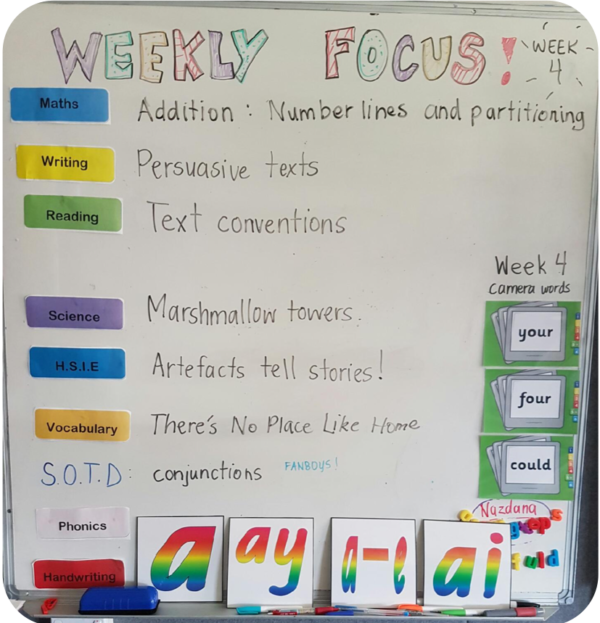 WEEKLY FOCUS! WEEK 4
Maths Addition: Number lines and partitioning
Writing Persuasive texts
Reading Text conventions
Week 4
camera words
Science Marshmallow towers.
your
H.S.I.E Artefacts tell stories!
four
Vocabulary There's No Place Like Home
could
S.O.T.D: conjunctions FANBOYS!
Nazdana
Phonics
a ay a-e ai
Handwriting